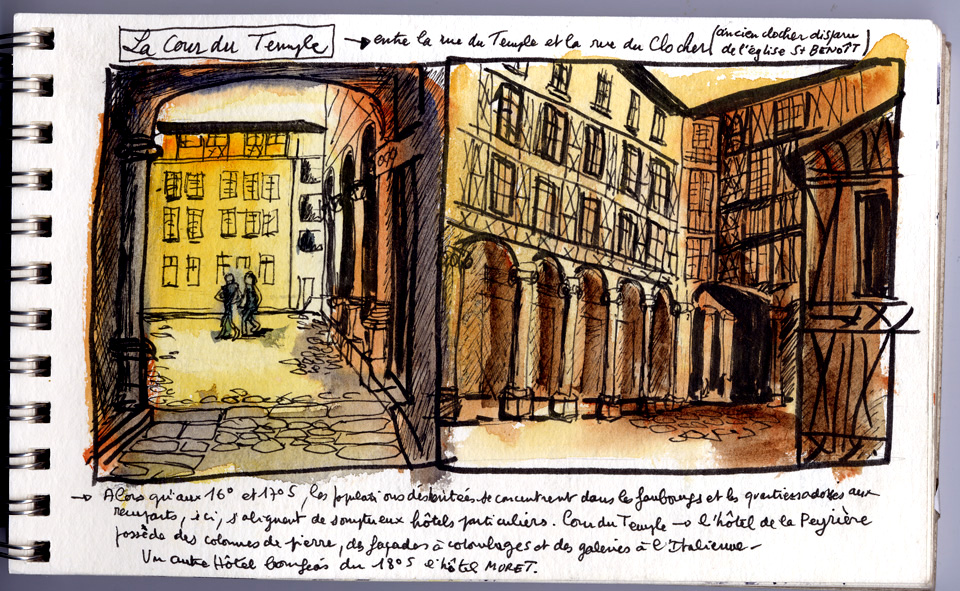 La Cour du Temple → entre la rue du Temple et la rue du Clocher (ancien clocher disparu
de l'église St BENOÎT)
→ Alors qu'aux 16° et 17° S, les populations déshéritées se concentrent dans les faubourgs et les quartiers adossés aux
remparts, ici, s'alignent de somptueux hôtels particuliers. Cour du Temple → l'hôtel de la Peyrière
possède des colonnes de pierre, des façades à colombages et des galeries à l'Italienne -
Un autre Hôtel bourgeois du 18° S l'hôtel MORET.